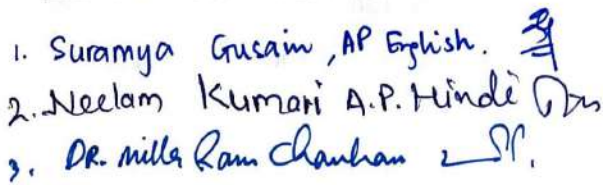 1. Suramya Gusain, AP English.
2. Neelam Kumari A.P. Hindi
3. DR. Miller Ram Chauhan